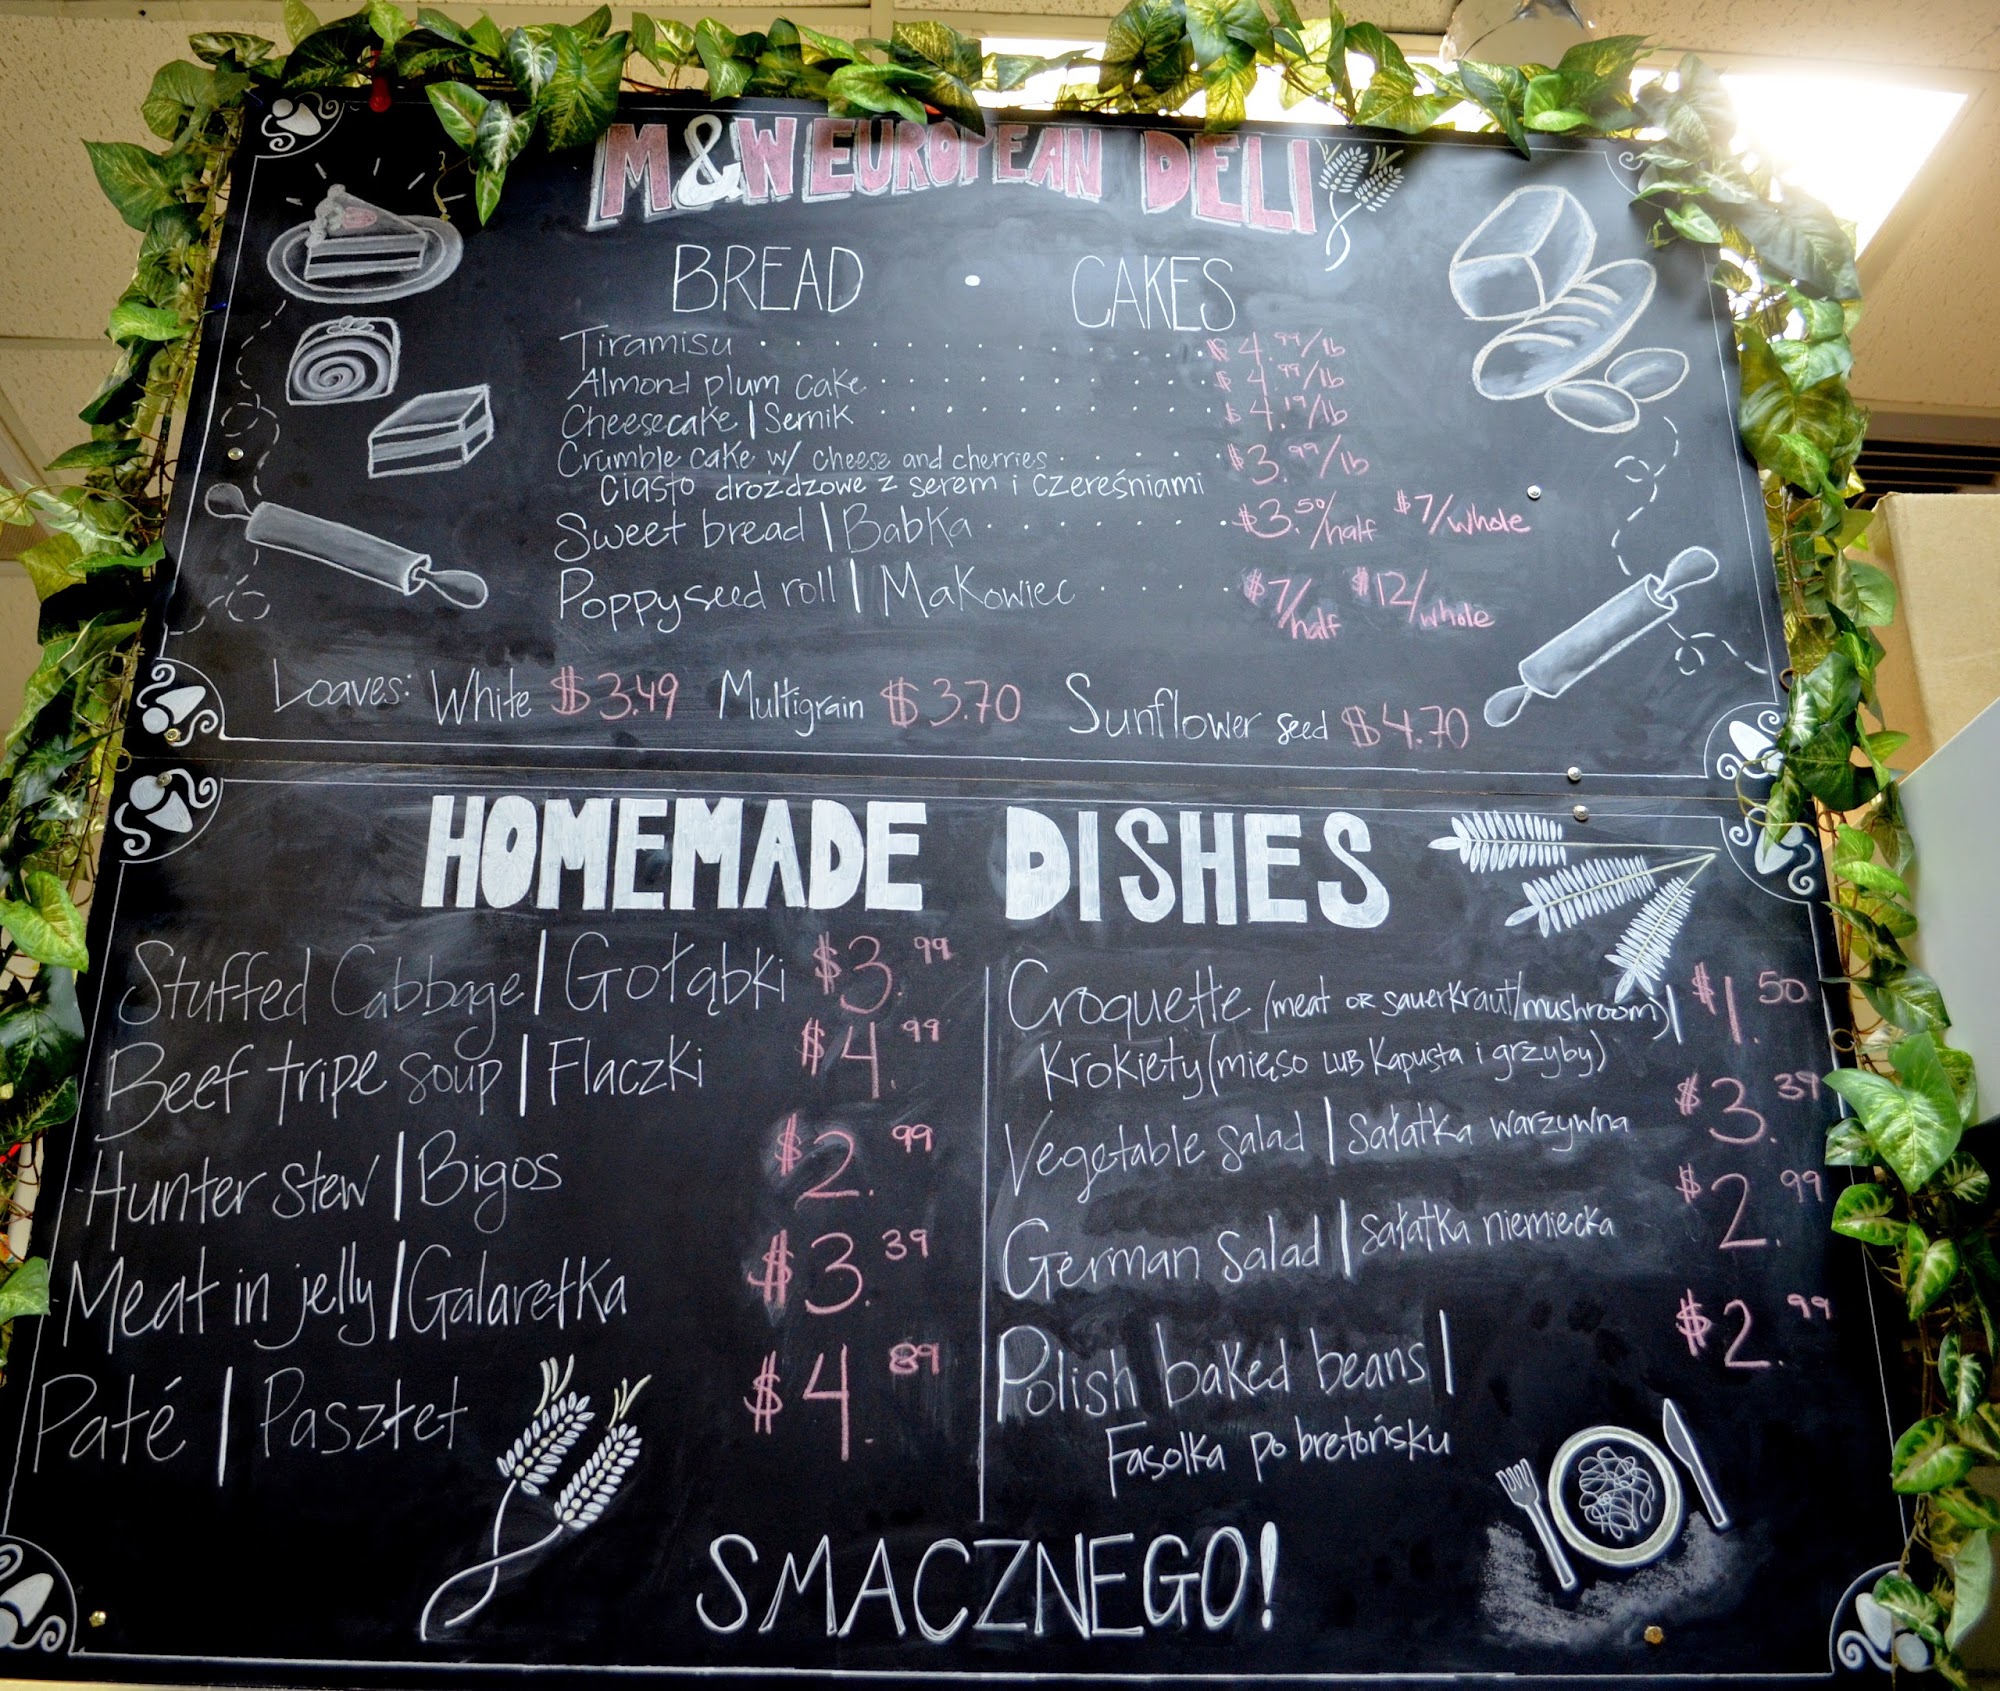 M&W EUROPEAN DELI
BREAD • CAKES
Tiramisu $4.99/lb
Almond plum cake $4.99/lb
Cheesecake | Sernik $4.19/lb
Crumble cake w/ cheese and cherries $3.99/lb
Ciasto drożdżowe z serem i czereśniami
Sweet bread | Babka $3.50/half $7/whole
Poppyseed roll | Makowiec $7/half $12/whole
Loaves: White $3.49 Multigrain $3.70 Sunflower seed $4.70
HOMEMADE DISHES
Stuffed Cabbage | Gołąbki $3.99
Beef tripe soup | Flaczki $4.99
Hunter stew | Bigos $2.99
Meat in jelly | Galaretka $3.39
Paté | Pasztet $4.89
Croquette (meat OR sauerkraut/mushroom) | $1.50
Krokiety (mięso LUB kapusta i grzyby)
Vegetable salad | Sałatka warzywna $3.39
German salad | Sałatka niemiecka $2.99
Polish baked beans | $2.99
Fasolka po bretońsku
SMACZNEGO!